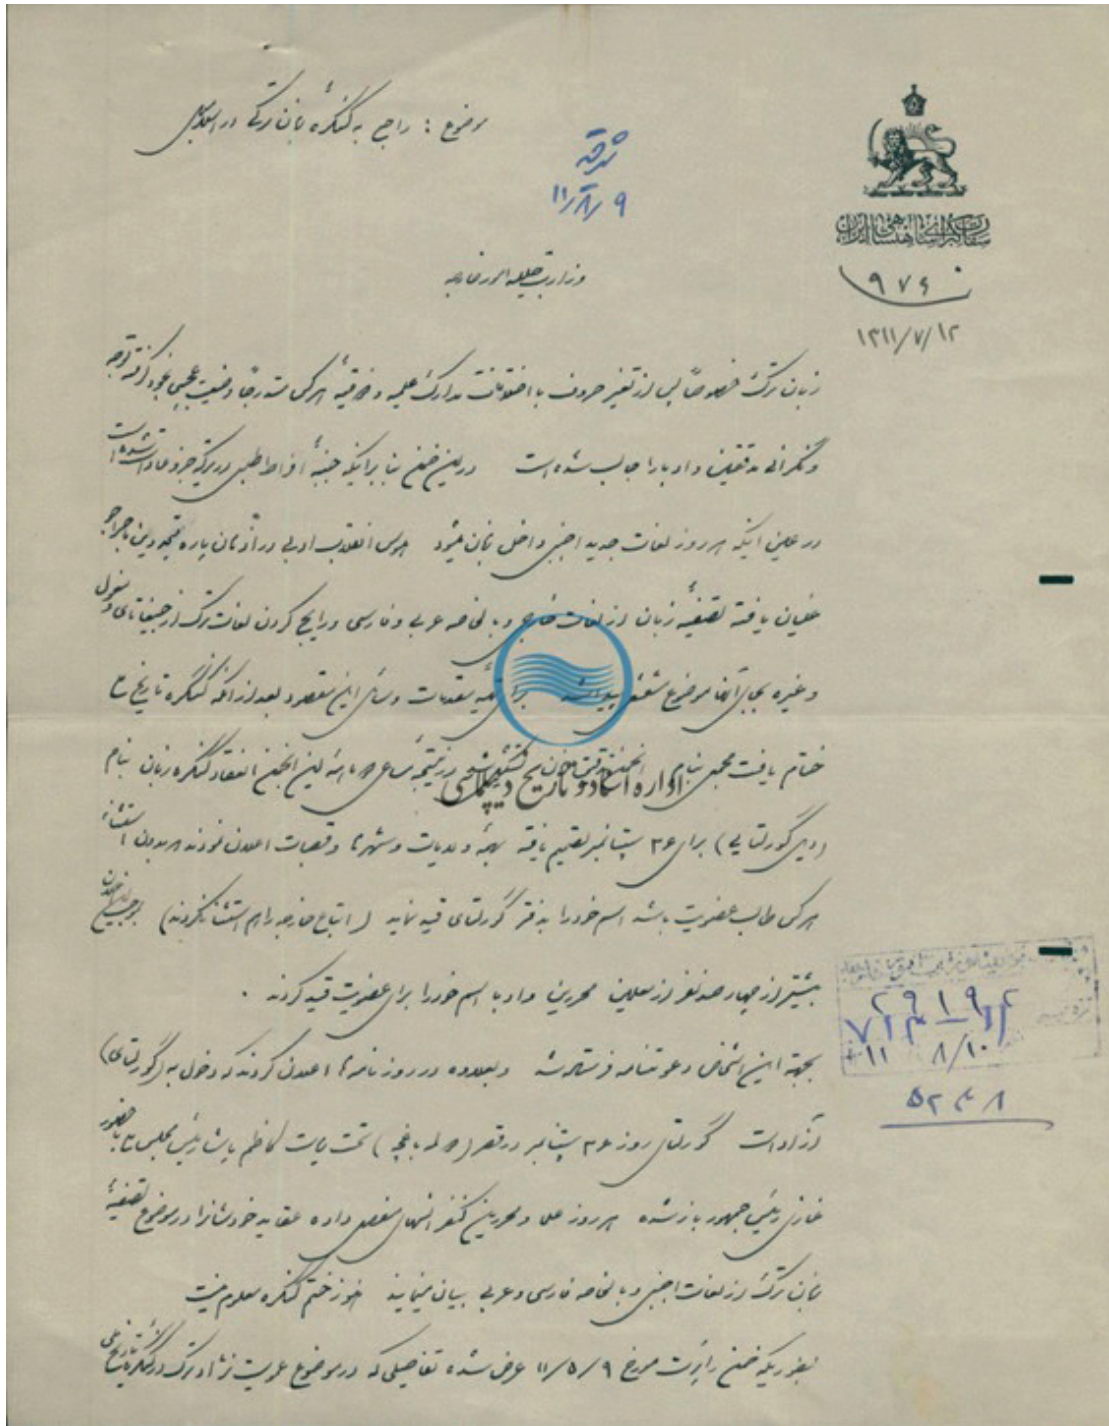 موضوع : راجع به کنگره زبان ترکی در اسلامبول
شرقی
۹/۸/۱۱
سفارت کبرای شاهنشاهی ایران
وزارت جلیله امور خارجه
نمره ۹۷۴
۱۳۱۱/۷/۱۲
زبان ترک خصوصاً پس از تغییر حروف با اختلافات مدارک علمیه و ذوقیه هر کس متدرجاً وضعیت عجیبی بخود گرفته توجه
و نگرانی مدققین و ادبا را جالب شده است در این ضمن بنا بر اینکه جنبه افراط طلبی در ترکیه جزو عادات شده است
در عین اینکه هر روز لغات جدید اجنبی داخل زبان میشود هوس انقلاب ادبی در آن زبان پاره
غلیان یافته تصفیه زبان از لغات خارجی و بالخاصه عربی و فارسی و رایج کردن لغات ترک از جغتای و مغول
و غیره بجای آنها موضوع مشغله پیدا شده برای تهیه مقدمات و وسائل این مقصود بعد از آنکه کنگره تاریخ
ختام یافت مجمعی بنام انجمن تدقیق زبان تشکیل شد در نتیجه مساعی هیئت این انجمن انعقاد کنگره زبان بنام
اداره اسناد و تاریخ دیپلماسی
(دیل گورلتایی) برای ۲۶ سپتامبر تصمیم یافته بهمه ولایات و شهرها و قصبات اعلان نمودند که بدون استثناء
هر کس طالب عضویت باشد اسم خود را بدفتر گورلتای قید نماید (اتباع خارجه را هم استثنا نکردند) بموجب این اعلان
بیشتر از چهار صد نفر از معلمین محررین و ادبا اسم خود را برای عضویت قید کردند .
بجهة این اشخاص دعوتنامه فرستاده شد و بعلاوه در روزنامه ها اعلان کردند که دخول به (گورلتای)
آزاد است گورلتای روز ۲۶ سپتامبر در قصر (دلمه باغچه) تحت ریاست کاظم پاشا رئیس مجلس با حضور
غازی رئیس جمهور باز شده هر روز علما و محررین کنفرانسهای مفصل داده عقاید خودشانرا در موضوع تصفیه
زبان ترک از لغات اجنبی و بالخاصه فارسی و عربی بیان مینمایند هنوز ختم کنگره معلوم نیست
بطوریکه ضمن راپرت مورخ ۱۱/۵/۹ عرض شده تفاصیلی که در موضوع عمومیت نژاد ترک در کنگره تاریخ
۲۹۱۹۲
۱۱/۸/۱۰
۵۲۴۸